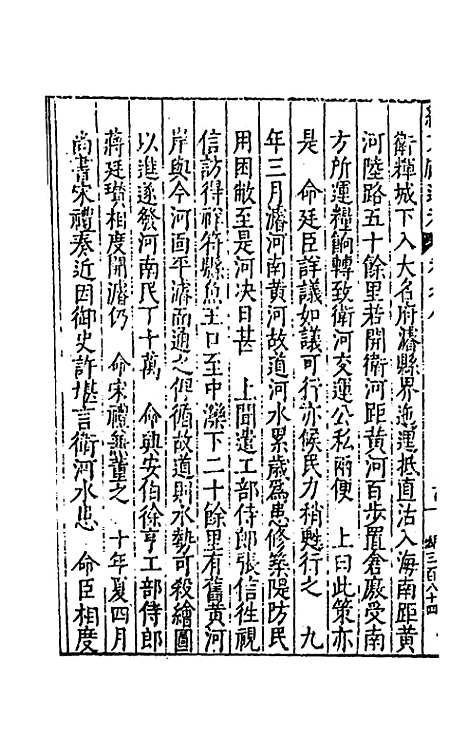 衛輝城下入大名府濬縣界迤邐抵直沽入海南距黃
河陸路五十餘里若開衛河距黃河百步置倉廒受南
方所運糧餉轉致衛河交運公私兩便 上曰此策亦
是 命廷臣詳議如議可行亦候民力稍甦行之 九
年三月濬河南黃河故道河水累歲爲患修築隄防民
用困敝至是河决日甚 上聞遣工部侍郎張信徃視
信訪得祥符縣魚王口至中灤下二十餘里有舊黃河
岸與今河面平濬而通之俾循故道則水勢可殺繪圖
以進遂發河南民丁十萬 命興安伯徐亨工部侍郎
蔣廷瓚相度開濬仍 命宋禮兼董之 十年夏四月
尚書宋禮奏近因御史許堪言衛河水患 命臣相度
三百八十四